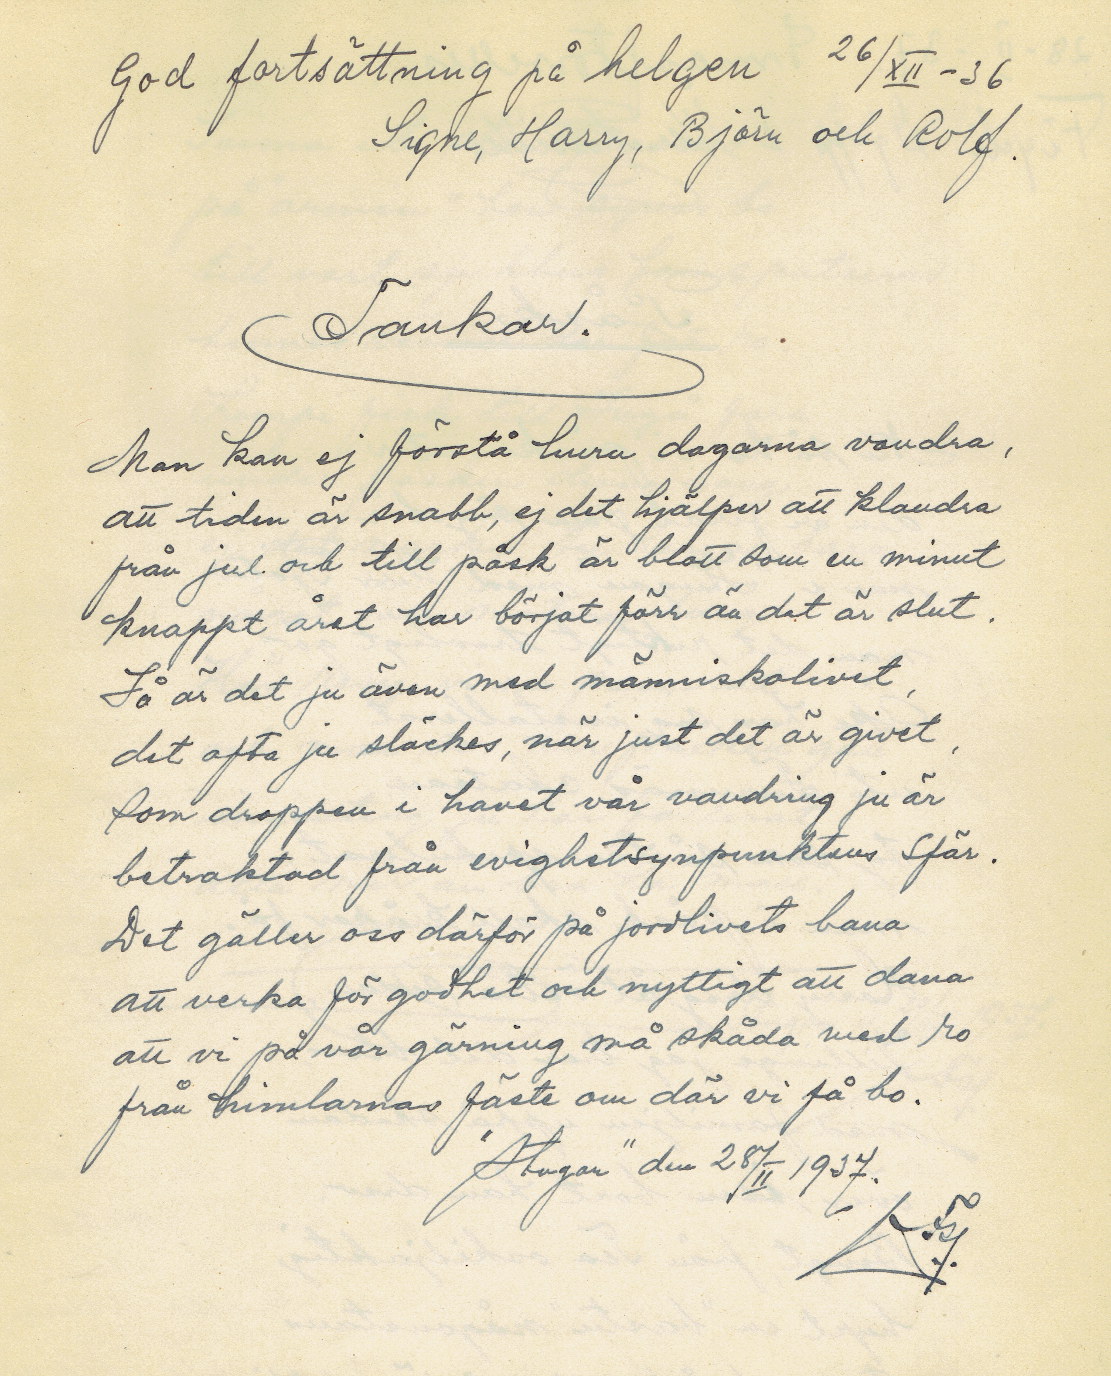 God fortsättning på helgen 26/XII -36
Signe, Harry, Björn och Rolf.
Tankar.
Man kan ej förstå huru dagarna vandra,
att tiden är snabb, ej det hjälper att klandra
från jul och till påsk är blott som en minut
knappt året har börjat förr än det är slut.
Så är det ju även med människolivet,
det ofta ju släckes, när just det är givet,
Som droppen i havet vår vandring ju är
betraktad från evighetsynpunktens sfär.
Det gäller oss därför på jordlivets bana
att verka för godhet och nyttigt att dana
att vi på vår gärning må skåda med ro
från himlarnas fäste om där vi få bo.
"Stugan" den 28/II 1937.